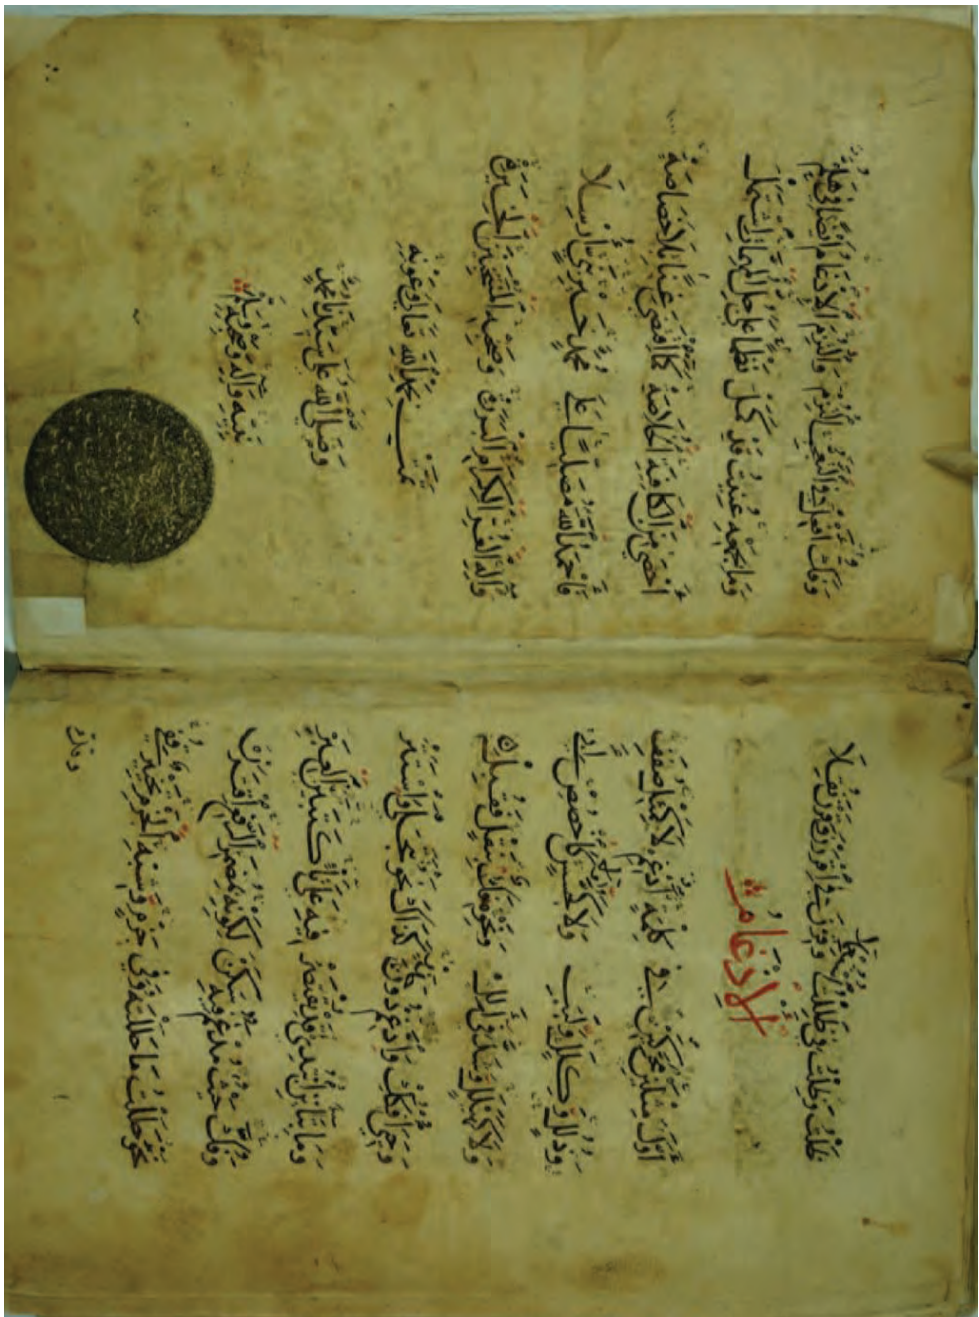 ظَلْتُ وَظِلْتُ فِي ظَلِلْتُ اسْتُعْمِلَا وَقِرْنَ فِي اقْرِرْنَ وَقَرْنَ نُقِلَا
الإدغام
أوّل مثلين محرّكين في كلمة ادغم لا كمثل صفف
وذلل وكلل ولبب ولا كجسّس ولا كاخصص ابي
ولا كهيلل وشذّ في الل ونحوه فكّ بنقل فقبل
وحيي افكك وادّغم دون حذر كذاك نحو تتجلّى واستتر
وما بتاءين ابتدي قد يقتصر فيه على تا كتبيّن العبر
وفكّ حيث مدغم فيه سكن لكونه بمضمر الرفع اقترن
نحو حللت ما حللته وفي جزم وشبه الجزم تخيير قفي
وفك
وفكّ افعل في التعجّب التزم والتزم الإدغام أيضا في هلمّ
وما بجمعه عنيت قد كمل نظما على جلّ المهمّات اشتمل
أحصى من الكافية الخلاصة كما اقتضى غنى بلا خصاصة
فأحمد الله مصلّيا على محمّد خير نبيّ أرسلا
وآله الغرّ الكرام البررة وصحبه المنتخبين الخيرة
تمت بحمد الله تعالى وعونه
وصلى الله على سيدنا محمد
نبيه وآله وصحبه